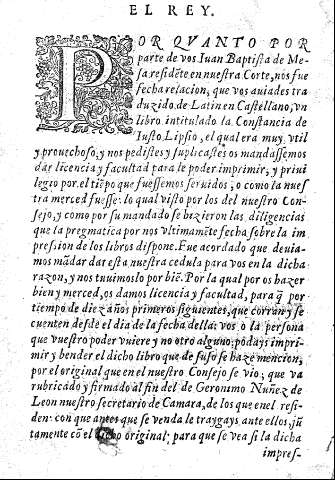 EL REY.
POR QVANTO POR
parte de vos Iuan Baptista de Me-
sa residẽte en nuestra Corte, nos fue
fecha relacion, que vos auiades tra
duzido de Latin en Castellano, vn
libro intitulado la Constancia de
Iusto Lipsio, el qual era muy vtil
y prouechoso, y nos pedistes y suplicastes os mandassemos
dar licencia y facultad para le poder imprimir, y priui
legio por el tiẽpo que fuessemos seruidos, o como la nues
tra merced fuesse: lo qual visto por los del nuestro Con-
sejo, y como por su mandado se hizieron las diligencias
que la pregmatica por nos vltimamẽte fecha sobre la im
pression de los libros dispone. Fue acordado que deuia-
mos mãdar dar esta nuestra cedula para vos en la dicha
razon, y nos tuuimoslo por biẽ. Por la qual por os hazer
bien y merced, os damos licencia y facultad, para q̃ por
tiempo de diez años primeros siguientes, que corran y se
cuenten desde el dia de la fecha della: vos o la persona
que vuestro poder vuiere y no otro alguno: podays impri-
mir y bender el dicho libro que de suso se haze mencion,
por el original que en el nuestro Consejo se vio; que va
rubricado y firmado al fin del de Geronimo Nuñez de
Leon nuestro secretario de Camara, de los que en el resi-
den: con que antes que se venda le traygays ante ellos, jũ
tamente cõ el dicho original; para que se vea si la dicha
impres-